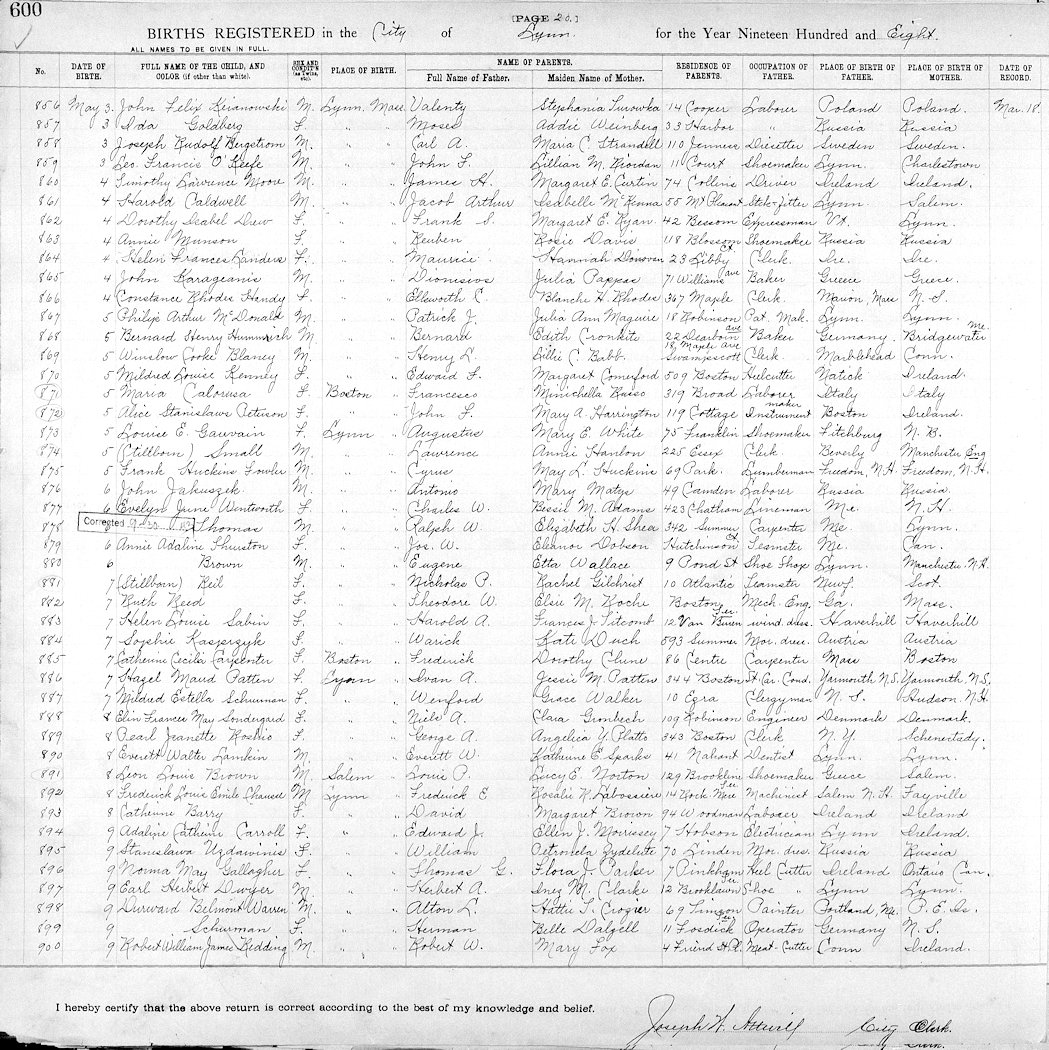 600
[PAGE 20.]
BIRTHS REGISTERED in the City of Lynn. for the Year Nineteen Hundred and Eight.
ALL NAMES TO BE GIVEN IN FULL.
No. DATE OF BIRTH. FULL NAME OF THE CHILD, AND COLOR (if other than white). SEX AND CONDIT'N (as Twins, etc). PLACE OF BIRTH. NAME OF PARENTS. Full Name of Father. Maiden Name of Mother. RESIDENCE OF PARENTS. OCCUPATION OF FATHER. PLACE OF BIRTH OF FATHER. PLACE OF BIRTH OF MOTHER. DATE OF RECORD.
856 May 3. John Felix Kijanowski M. Lynn, Mass Valenty Stephania Surowka 14 Cooper Labour Poland Poland. Mar. 18.
857 3 Ida Goldberg F. " " Moses Addie Weinberg 33 Harbor " Russia Russia
858 3 Joseph Rudolf Bergstrom M. " " Carl A. Maria C. Strandell 110 Jenness Diesetter Sweden Sweden.
859 3 Leo. Francis O'Keefe M. " " John F. Lillian M. Riordan 11 Court Shoemaker Lynn. Charlestown
860 4 Timothy Lawrence Moore M. " " James H. Margaret E. Curtin 74 Collins Driver Ireland Ireland.
861 4 Harold Caldwell M. " " Jacob Arthur Isabelle McKenna 55 Mt Pleasant Stble-fitter Lynn. Salem.
862 4 Dorothy Isabel Dew F. " " Frank S. Margaret E. Ryan 42 Bessom Expressman Vt. Lynn.
863 4 Annie Munson F. " " Reuben Rosie Davis 118 Blossom Shoemaker Russia Russia
864 4 Helen Frances Landers F. " " Maurice Hannah Donovan 23 Libby Ct Clerk. Ire. Ire.
865 4 John Karageanis M. " " Dionisios Julia Pappas 71 Williams ave Baker Greece Greece.
866 4 Constance Rhodes Handy F. " " Ellsworth C. Blanche H. Rhodes 367 Maple Clerk. Marion, Mass N. S.
867 5 Philip Arthur McDonald M. " " Patrick J. Julia Ann Maguire 18 Robinson Pat. Mak. Lynn. Lynn.
868 5 Bernard Henry Hummrich M " " Bernard Edith Cronkite 22 Dearborn ave Baker Germany. Bridgewater Me.
869 5 Winslow Cooke Blaney M. " " Henry L. Lillie C. Babb. 18 Maple Ave Swampscott Clerk. Marblehead Conn.
870 5 Mildred Louise Kenney F. " " Edward F. Margaret Comerford 509 Boston Heelcutter Natick Ireland.
871 5 Maria Calorusa F. Boston " Francesco Minichella Russo 319 Broad Laborer Italy Italy
872 5 Alice Stanislaws Peterson F. " " John F. Mary A. Harrington 119 Cottage Instrument maker Boston Ireland.
873 5 Louise E. Gauvain F. Lynn " Augustus Mary E. White 75 Franklin Shoemaker Fitchburg N. B.
874 5 (Stillborn) Small M. " " Lawrence Annie Hanlon 225 Essex Clerk. Beverly Manchester Eng
875 5 Frank Huckins Fowler M. " " Cyrus May L. Huckins 69 Park. Lumberman Freedom, N.H. Freedom, N.H.
876 6 John Jakuszek. M. " " Antonio Mary Matys 49 Camden Labour Russia Russia.
877 6 Evelyn June Wentworth F. " " Charles W. Bessie M. Adams 423 Chatham Lineman Me. N. H.
878 Corrected Thomas M. " " Ralph W. Elizabeth H. Shea 342 Summer Carpenter Me. Lynn.
879 6 Annie Adaline Thurston F. " " Jos. W. Eleanor Dobson Hutchinson Ct Teamster Me. Can.
880 6 Brown M. " " Eugene Etta Wallace 9 Pond St Shoe Shop Lynn. Manchester N.H.
881 7 (Stillborn) Keil F. " " Nicholas P. Rachel Gilchrist 10 Atlantic Teamster Newf. Scot.
882 7 Ruth Reed F. " " Theodore W. Elsie M. Roche Boston Mech. Eng. Ga. Mass.
883 7 Helen Louise Sabin F. " " Harold A. Frances J. Titcomb 12 Van Buren Ter. wind. dres. Haverhill Haverhill
884 7 Sophie Kasperzyk F. " " Warick Kate Duch 593 Summer Mor. dres. Austria Austria
885 7 Catherine Cecilia Carpenter F. Boston " Frederick Dorothy Clune 86 Centre Carpenter Mass Boston
886 7 Hazel Maud Patten F. Lynn " Ivan A. Jessie M. Patten 344 Boston St Car. Cond. Yarmouth N.S. Yarmouth, N.S.
887 7 Mildred Estella Schurman F. " " Wenford Grace Walker 10 Ezra Clergyman N. S. Hudson. N.H.
888 8 Elin Frances May Sondergard F. " " Niels A. Clara Gronbech 109 Robinson Engineer Denmark Denmark.
889 8 Pearl Jeanette Roshio F. " " George A. Angelica Y. Platto 343 Boston Clerk N. Y. Schenectady.
890 8 Everett Walter Lamkin M. " " Everett W. Katherine E. Sparks 41 Nahant Dentist Lynn. Lynn.
891 8 Leon Louis Brown M. Salem " Louis P. Lucy E. Norton 129 Brookline Shoemaker Greece Salem.
892 8 Frederick Louis Emile Chausse M Lynn " Frederick E. Rosalie R. Labossiere 14 Rock Mere Ter Machinist Salem N.H. Fayville
893 8 Catherine Barry F. " " David Margaret Brown 94 Woodman Laborer Ireland Ireland
894 9 Adaline Catherine Carroll F. " " Edward J. Ellen J. Morrissey 7 Hobson Electrician Lynn Ireland.
895 9 Stanislawa Uzdawinis F. " " William Petronela Zydelute 70 Linden Mor. dres. Russia Russia
896 9 Norma May Gallagher F. " " Thomas G. Flora J. Parker 7 Pinkham Heel Cutter Ireland Ontario Can.
897 9 Earl Herbert Dwyer M. " " Herbert A. Inez M. Clarke 12 Brooklawn Ter. Shoe " Lynn Lynn.
898 9 Durward Belmont Warren M. " " Alton L. Hattie T. Crozier 69 Timson Painter Portland, Me. P. E. Is.
899 9 Schurman. F. " " Herman Belle Dalzell 11 Fosdick Ter Operator Germany N. S.
900 9 Robert William James Redding M. " " Robert W. Mary Fox 4 Friend St Pl. Meat-Cutter Conn Ireland.
I hereby certify that the above return is correct according to the best of my knowledge and belief.
Joseph W. Attwill City Clerk.